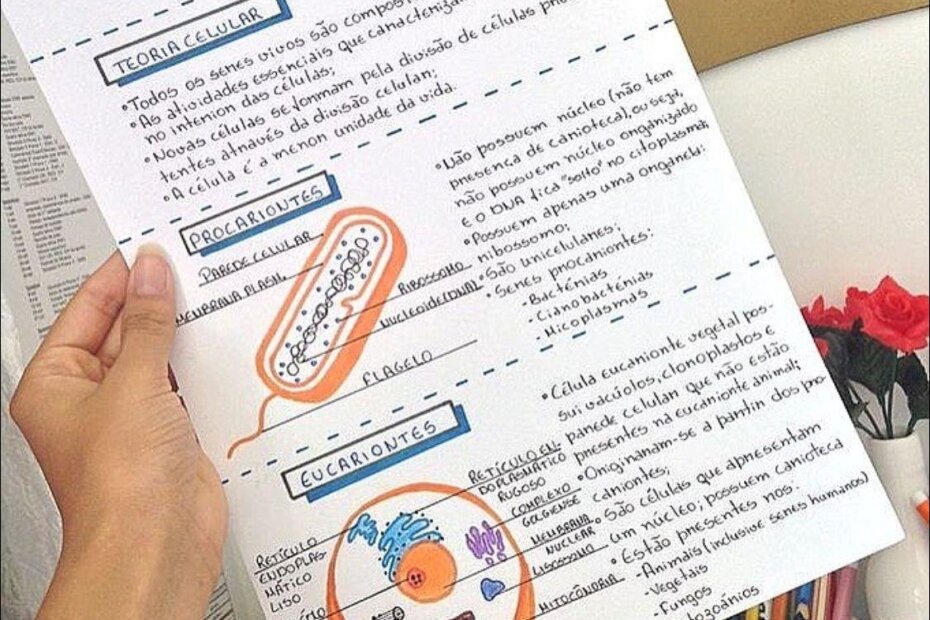 TEORIA CELULAR
•Todos os seres vivos são compos
•As atividades essenciais que caracteriza
no interior das células;
•Novas células se formam pela divisão de células pre
tentes através da divisão celular;
•A célula é a menor unidade da vida.
PROCARIONTES
PAREDE CELULAR
MEMBRANA PLASM.
RIBOSSOMO
NUCLEOIDE(DNA)
FLAGELO
•Não possuem núcleo (não tem
presença de carioteca), ou seja,
não possuem núcleo organizado
e o DNA fica "solto" no citoplasma;
•Possuem apenas uma organela:
ribossomo;
•São unicelulares;
•Seres procariontes:
-Bactérias
-Cianobactérias
-Micoplasmas
EUCARIONTES
RETÍCULO EN-
DOPLASMÁTICO
RUGOSO
COMPLEXO
GOLGIENSE
MEMBRANA
NUCLEAR
LISOSSOMO
MITOCÔNDRIA
RETÍCULO
ENDOPLAS-
MÁTICO
LISO
•Célula eucarionte vegetal pos-
sui vacúolos, cloroplastos e
parede celular que não estão
presentes na eucarionte animal;
•Originaram-se a partir dos pro-
cariontes;
•São células que apresentam
um núcleo; possuem carioteca
•Estão presentes nos:
-Animais (inclusive seres humanos)
-Vegetais
-Fungos